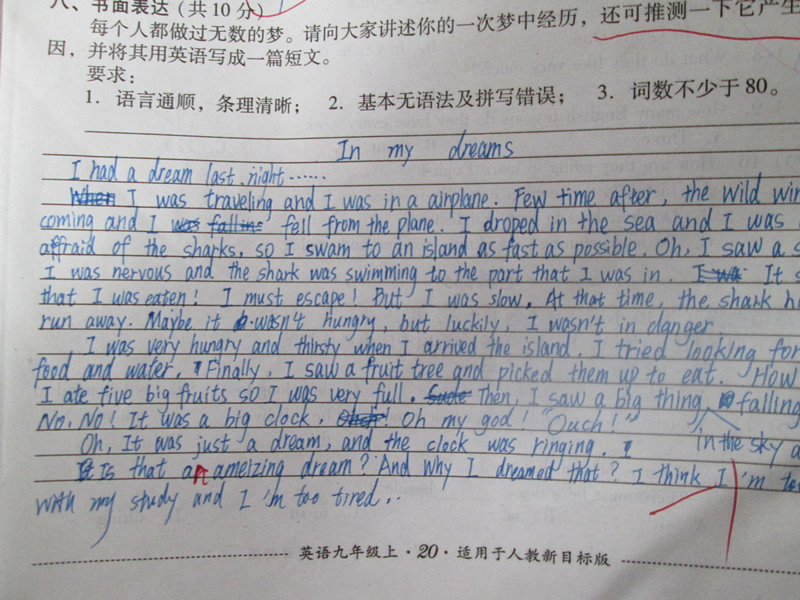 八、书面表达（共10分）
每个人都做过无数的梦。请向大家讲述你的一次梦中经历，还可推测一下它产生
因，并将其用英语写成一篇短文。
要求：
1. 语言通顺，条理清晰； 2. 基本无语法及拼写错误； 3. 词数不少于80。
In my dreams
I had a dream last night……
I was traveling and I was in a airplane. Few time after, the wild
coming and I fell from the plane. I droped in the sea and I was
affraid of the sharks, so I swam to an island as fast as possible. Oh, I saw a
I was nervous and the shark was swimming to the part that I was in. It
that I was eaten! I must escape! But I was slow. At that time, the shark
run away. Maybe it wasn't hungry, but luckily, I wasn't in danger.
I was very hungry and thirsty when I arrived the island. I tried looking for
food and water. Finally, I saw a fruit tree and picked them up to eat. How
I ate five big fruits so I was very full. Then, I saw a big thing falling
No, No! It was a big clock. Oh my god! "Ouch!"
Oh, It was just a dream, and the clock was ringing. in the sky
Is that a ameizing dream? And why I dreamed that? I think I'm
with my study and I'm too tired..
英语九年级上·20·适用于人教新目标版